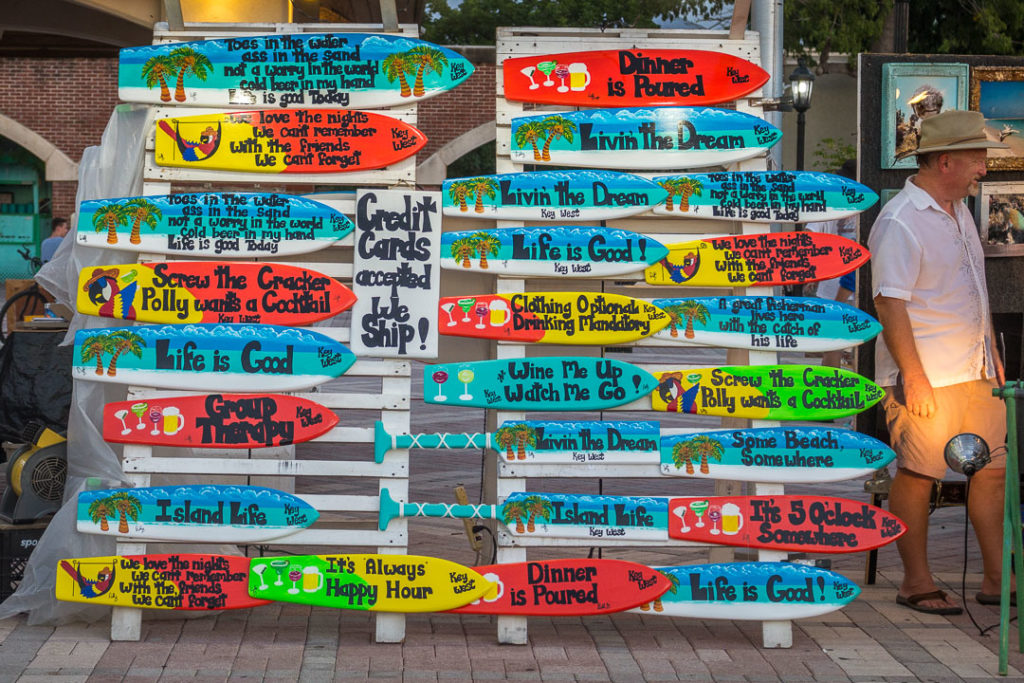 Toes in the water
ass in the sand
not a worry in the world
cold beer in my hand
Life is good Today
Key West
We love the nights
We can't remember
with the friends
We can't forget
Key West
Toes in the water
ass in the sand
not a worry in the world
cold beer in my hand
Life is good Today
Key West
Screw the Cracker
Polly wants a Cocktail
Key West
Life is Good
Key West
Group
Therapy
Key West
Island Life
Key West
We love the nights
We can't remember
with the friends
We can't forget
It's Always
Happy Hour
Key West
Credit
Cards
accepted
We
Ship!
Dinner
is Poured
Key West
Livin the Dream
Key West
Livin the Dream
Key West
Toes in the water
ass in the sand
not a worry in the world
cold beer in my hand
Life is good Today
Key West
Life is Good!
Key West
We love the nights
We can't remember
with the friends
We can't forget
Key West
Clothing Optional
Drinking Mandatory
Key West
A great fisherman
lives here
with the catch of
his life
Key West
Wine Me Up
Watch Me Go!
Key West
Screw the Cracker
Polly wants a Cocktail
Key West
Livin the Dream
Key West
Some Beach,
Somewhere
Key West
Island Life
Key West
It's 5 O'clock
Somewhere
Key West
Dinner
is Poured
Key West
Life is Good!
Key West